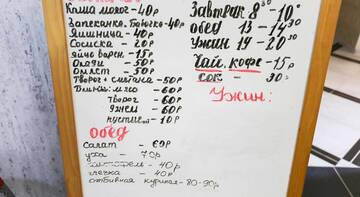 Каша молоч - 40р
Запеканка. Бабочко - 40р
Яишница - 40р
Сосиска - 20р
яйцо варен. - 15р
Олади - 50р
Омлет - 50р
Творог + сметана - 50р
Блины: мясо - 60р
творог - 60р
джем - 60р
пустые - 10р
обед
салат - 60р
уха - 70р
картофель - 40р
гречка - 40р
отбивная куриная - 80-90р
Завтрак 8³⁰ - 10⁰
обед 13 - 14³⁰
Ужин 19 - 20³⁰
Чай, кофе - 15р
сок - 30
Ужин: